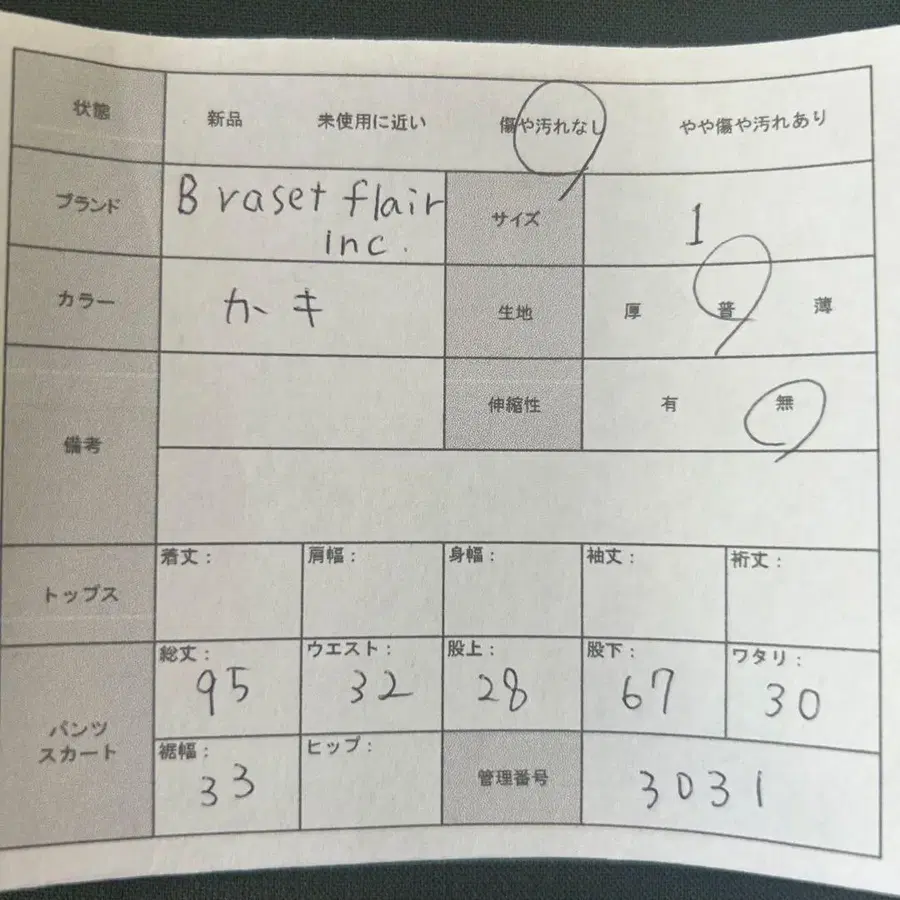 状態 新品 未使用に近い 傷や汚れなし やや傷や汚れあり
ブランド Braset flair サイズ 1
inc.
カラー カーキ 生地 厚 普 薄
備考 伸縮性 有 無
トップス 着丈： 肩幅： 身幅： 袖丈： 裄丈：
パンツ
スカート
総丈： ウエスト： 股上： 股下： ワタリ：
95 32 28 67 30
裾幅： ヒップ： 管理番号 3031
33